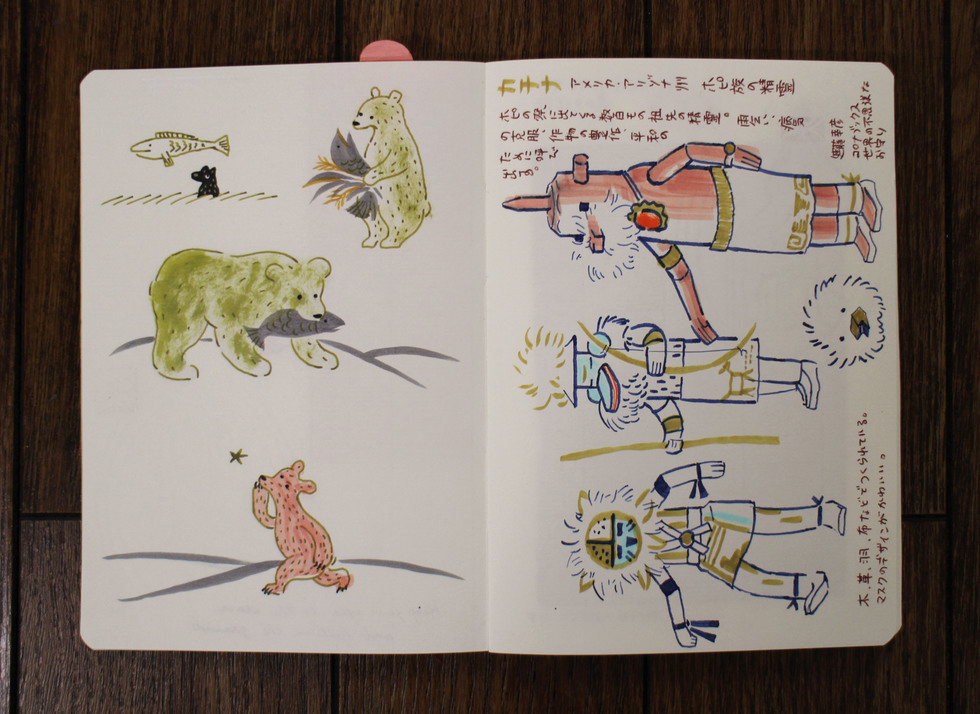 カチナ アメリカ・アリゾナ州 ホピ族の精霊
ホピの祭に出てくる数百もの祖先の精霊。雨乞い、病
の克服、作物の豊作、平和の
ために呼び
出す。
世界の不思議な
お守り
木、革、羽、布などでつくられている。
マスクのデザインがかわいい。